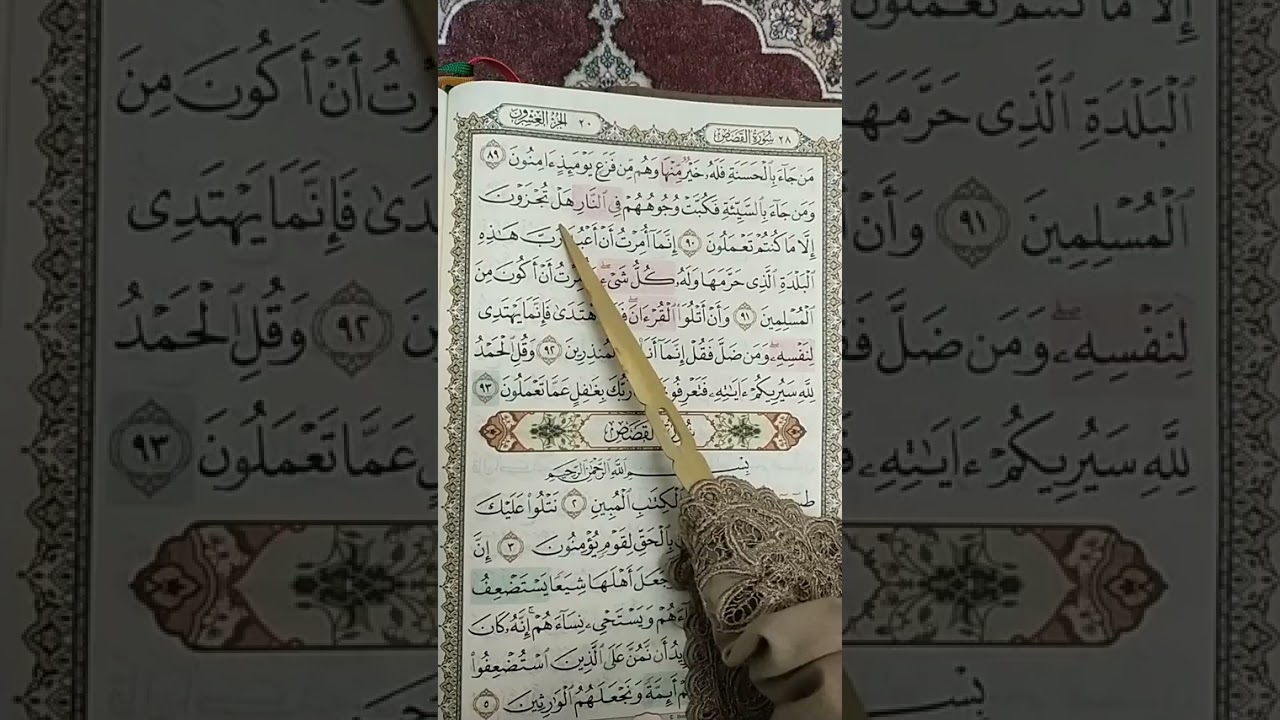 ٢٨ سُورَةُ القَصَصِ
الجُزْءُ العِشْرُونَ ٢٠
مَن جَآءَ بِٱلْحَسَنَةِ فَلَهُۥ خَيْرٌ مِّنْهَا وَهُم مِّن فَزَعٍ يَوْمَئِذٍ ءَامِنُونَ ٨٩
وَمَن جَآءَ بِٱلسَّيِّئَةِ فَكُبَّتْ وُجُوهُهُمْ فِى ٱلنَّارِ هَلْ تُجْزَوْنَ
إِلَّا مَا كُنتُمْ تَعْمَلُونَ ٩٠ إِنَّمَآ أُمِرْتُ أَنْ أَعْبُدَ رَبَّ هَـٰذِهِ
ٱلْبَلْدَةِ ٱلَّذِى حَرَّمَهَا وَلَهُۥ كُلُّ شَىْءٍ ۖ وَأُمِرْتُ أَنْ أَكُونَ مِنَ
ٱلْمُسْلِمِينَ ٩١ وَأَنْ أَتْلُوَا۟ ٱلْقُرْءَانَ ۖ فَمَنِ ٱهْتَدَىٰ فَإِنَّمَا يَهْتَدِى
لِنَفْسِهِۦ ۖ وَمَن ضَلَّ فَقُلْ إِنَّمَآ أَنَا۠ مِنَ ٱلْمُنذِرِينَ ٩٢ وَقُلِ ٱلْحَمْدُ
لِلَّهِ سَيُرِيكُمْ ءَايَـٰتِهِۦ فَتَعْرِفُونَهَا رَبُّكَ بِغَـٰفِلٍ عَمَّا تَعْمَلُونَ ٩٣
سُورَةُ القَصَصِ
بِسْمِ ٱللَّهِ ٱلرَّحْمَـٰنِ ٱلرَّحِيمِ
طسٓمٓ ٱلْكِتَـٰبِ ٱلْمُبِينِ ٢ نَتْلُوا۟ عَلَيْكَ
بِٱلْحَقِّ لِقَوْمٍ يُؤْمِنُونَ ٣ إِنَّ
وَجَعَلَ أَهْلَهَا شِيَعًا يَسْتَضْعِفُ
وَيَسْتَحْىِۦ نِسَآءَهُمْ ۚ إِنَّهُۥ كَانَ
أَن نَّمُنَّ عَلَى ٱلَّذِينَ ٱسْتُضْعِفُوا۟
أَئِمَّةً وَنَجْعَلَهُمُ ٱلْوَٰرِثِينَ ٥